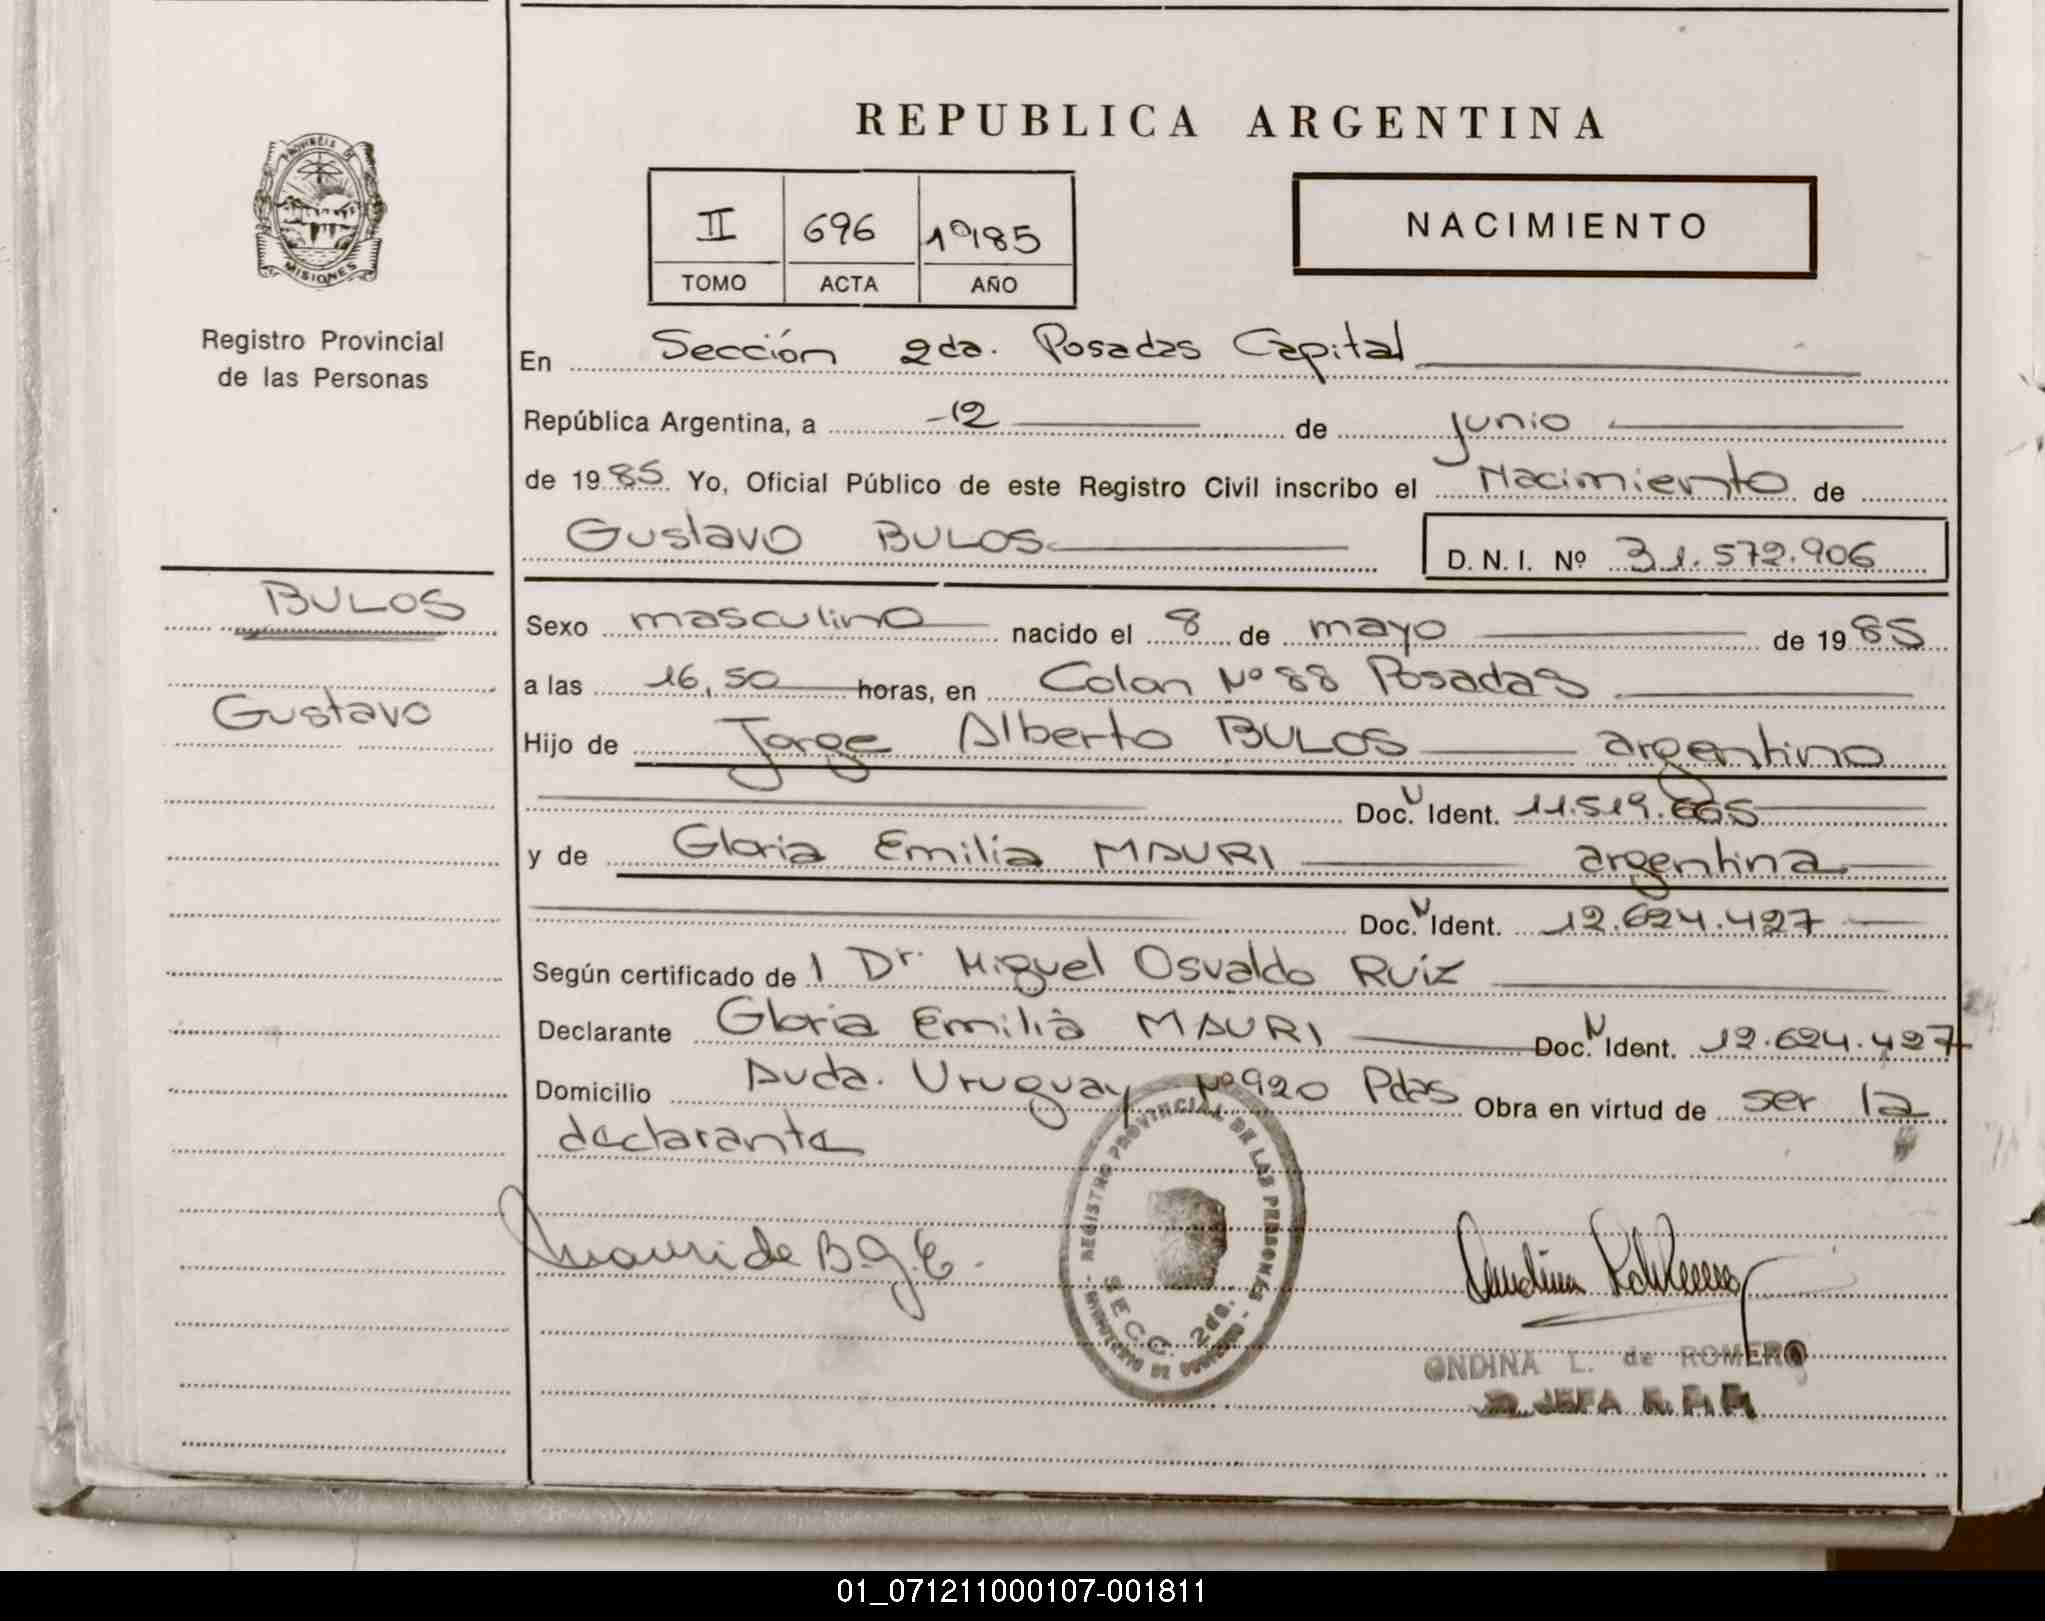 REPUBLICA ARGENTINA
PROVINCIA DE
MISIONES
Registro Provincial
de las Personas
II 696 1985
TOMO ACTA AÑO
NACIMIENTO
En Sección 2da. Posadas Capital
República Argentina, a -12 de junio
de 1985 Yo, Oficial Público de este Registro Civil inscribo el Nacimiento de
Gustavo BULOS D. N. I. Nº 31.572.906
BULOS
Gustavo
Sexo masculino nacido el 8 de mayo de 1985
a las 16,50 horas, en Colon Nº 88 Posadas
Hijo de Jorge Alberto BULOS argentino
Doc. N Ident. 11.519.665
y de Gloria Emilia MAURI argentina
Doc. N Ident. 12.624.427
Según certificado de l Dr. Miguel Osvaldo Ruíz
Declarante Gloria Emilia MAURI Doc. N Ident. 12.624.427
Domicilio Avda. Uruguay Nº 920 Pdas Obra en virtud de ser la
declarante
Mauri de B. G. E.
REGISTRO PROVINCIAL DE LAS PERSONAS
SECC. 2da.
MINISTERIO DE GOBIERNO
ONDINA L. de ROMERO
JEFA R. P. P.
01_071211000107-001811